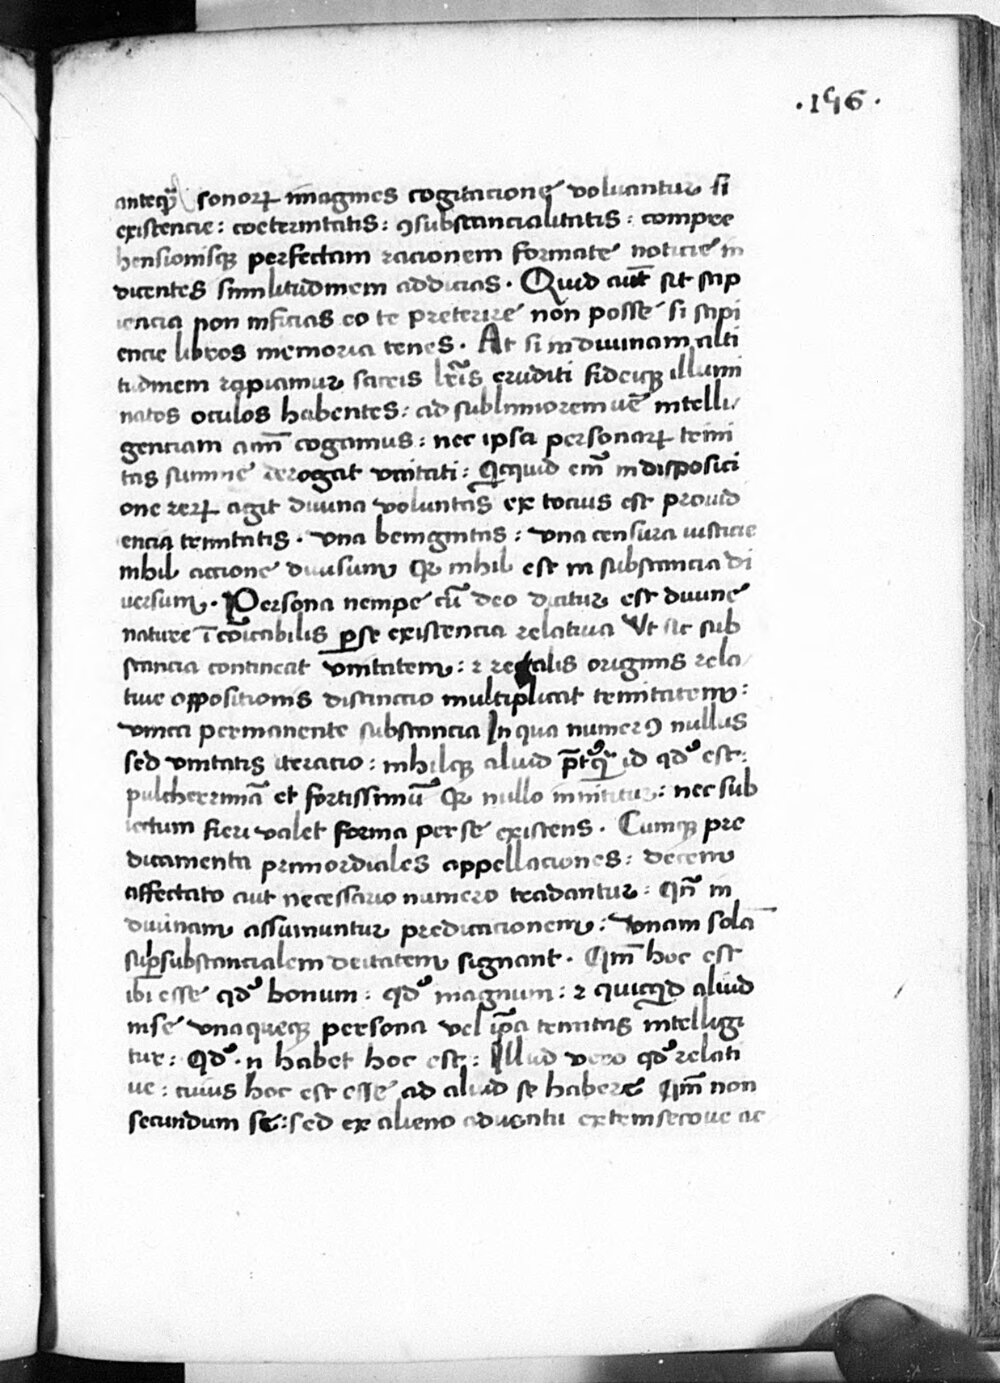 ·156·
anteq̃ sonoꝝ imagines cogitacione voluantur si
existencie : coeternitatis : ꝯsubstancialitatis : compre
hensionisqꝫ perfectam racionem formate noticie in
ducentes similitudinem addicias . Quid aut̃ sit sap
iencia non inficias eo te preterire non posse si sapi
encie libros memoria tenes . At si in diuinam alti
tudinem rapiamur sacris lr̃is eruditi fideiqꝫ illumi
natos oculos habentes : ad sublimiorem uẽ intelli
genciam aĩm cogamus : nec ipsa personaꝝ trini
tas summe derogat vnitati : Qicquid em̃ in disposici
one reꝝ agit diuina voluntas ex tocius est prouid
encia trinitatis . vna benignitas : vna censura iusticie
nihil accione diuisum Qꝛ nihil est in substancia di
uersum . Persona nempe cũ deo dicitur est diuine
nature ĩcõicabilis ꝑ se existencia relatiua Vt sic sub
stancia contineat vnitatem : ꝛ regalis originis rela
tiue oppositionis distinctio multiplicat trinitatem :
vnica permanente substancia In qua numerꝯ nullus
sed vnitatis iteracio : nihilqꝫ aliud p̃tq̃ id qdͦ est :
pulcherrimã et fortissimũ Qꝛ nullo innititur : nec sub
iectum fieri valet forma per se existens . Cumqꝫ pre
dicamenta primordiales appellaciones : decem
affectato aut necessario numero tradantur : Qñ in
diuinam assumuntur predicacionem : Vnam solã
suꝑsubstancialem deitatem signant . Qm̃ hoc est
ibi esse qdͦ bonum : qdͦ magnum : ꝛ quicqd aliud
in se vnaqueqꝫ persona vel ip̃a trinitas intelligi
tur : Qdͦ . n habet hoc est : Illud vero qdͦ relati
ue : cuius hoc est esse ad aliud se habere Qm̃ non
secundum se : sed ex alieno aduentu extrinsecoue ac